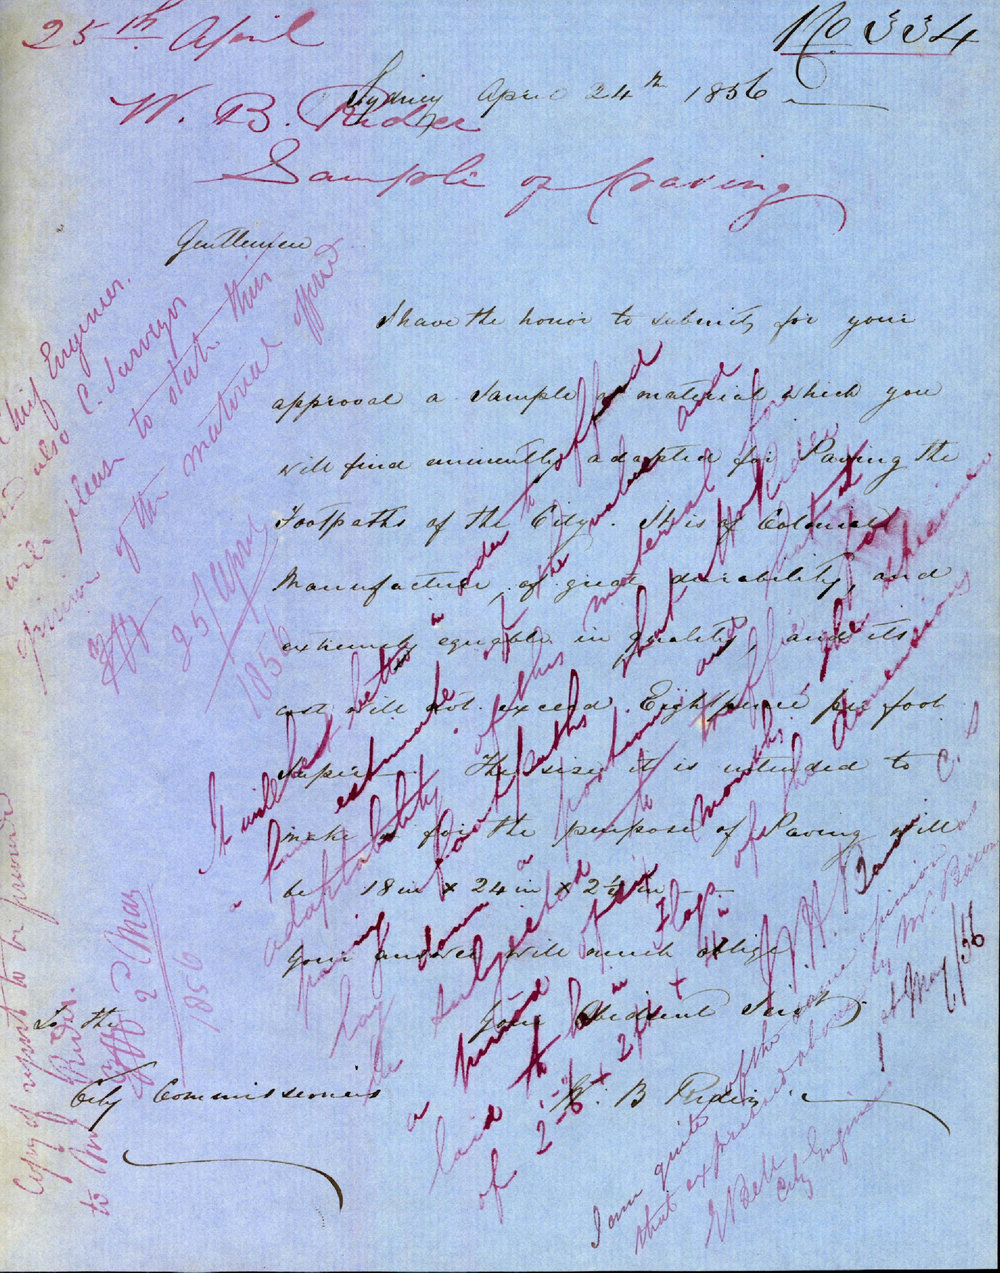 25th April
No 334
Sydney April 24th 1856
W. B. Rider
Sample of Paving
Gentlemen
I have the honor to submit for your
approval a Sample of material which you
will find eminently adapted for Paving the
Footpaths of the City. It is of Colonial
Manufacture, of great durability, and
extremely equable in quality, and its
cost will not exceed Eightpence per foot
super. The size it is intended to
make it for the purpose of Paving will
be 18 in x 24 in x 2 1/4 in
Your answer will much oblige
Your Obedient Servt
W. B. Rider
To the
City Commissioners
Chief Engineer.
also C. Surveyor
will please to state their
opinion of the material offered
25/April
1856
It will be better in order to afford
a fair estimate of the value and
adaptability of this material for
paving footpaths that
lay down a portion and
be subjected to the traffic
a period of six months the
laid to be Flags of the dimensions
of 2'-6" + 2 ft +
C. S
1st May/56
I am quite of the same opinion as
that expressed above by Mr. 
E Bell
City Engineer
Copy of report to be furnished
to Mr Rider.
2d May
1856